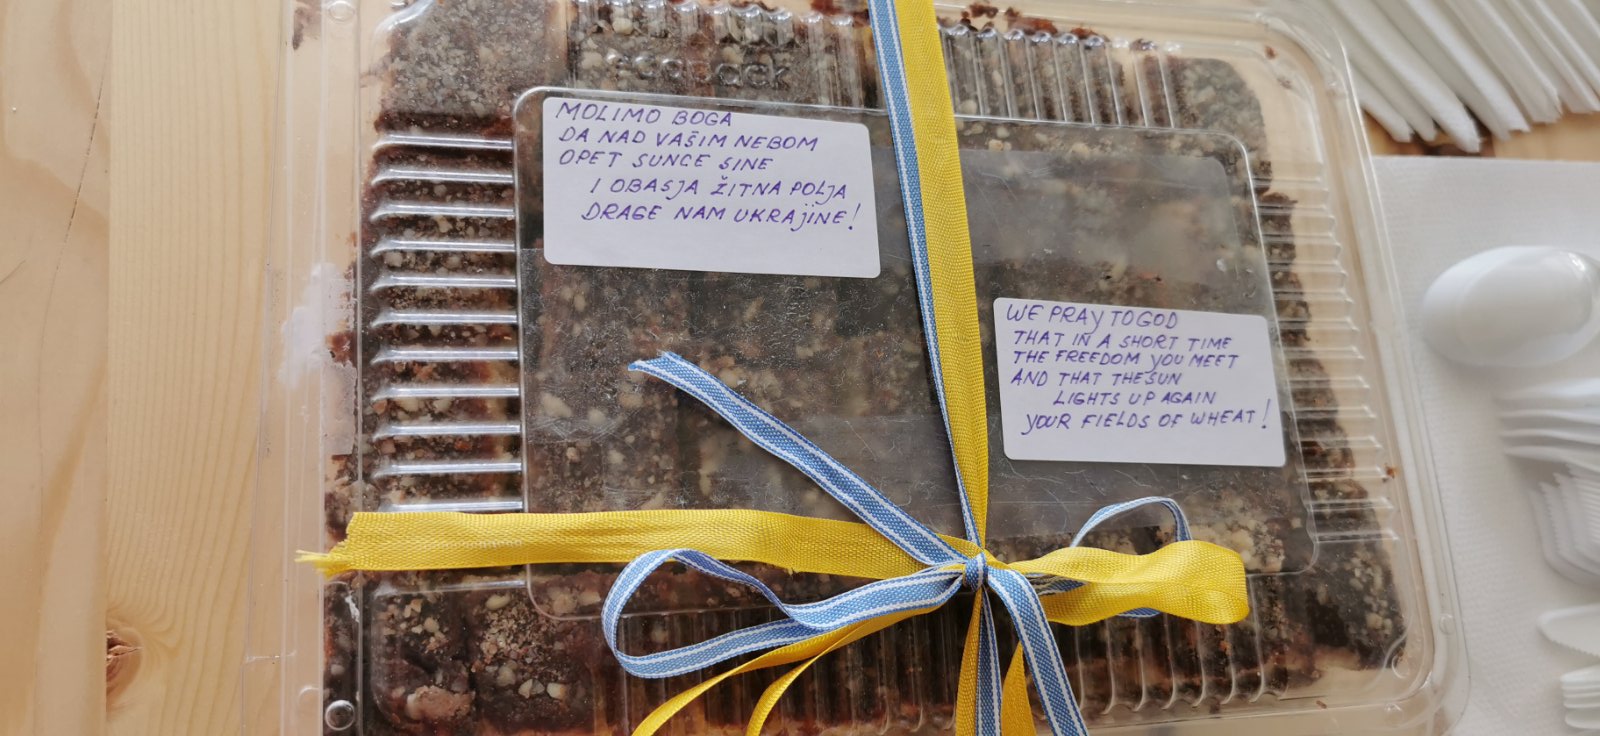 ecopack
MOLIMO BOGA
DA NAD VAŠIM NEBOM
OPET SUNCE SINE
I OBASJA ŽITNA POLJA
DRAGE NAM UKRAJINE!
WE PRAY TO GOD
THAT IN A SHORT TIME
THE FREEDOM YOU MEET
AND THAT THE SUN
LIGHTS UP AGAIN
YOUR FIELDS OF WHEAT!